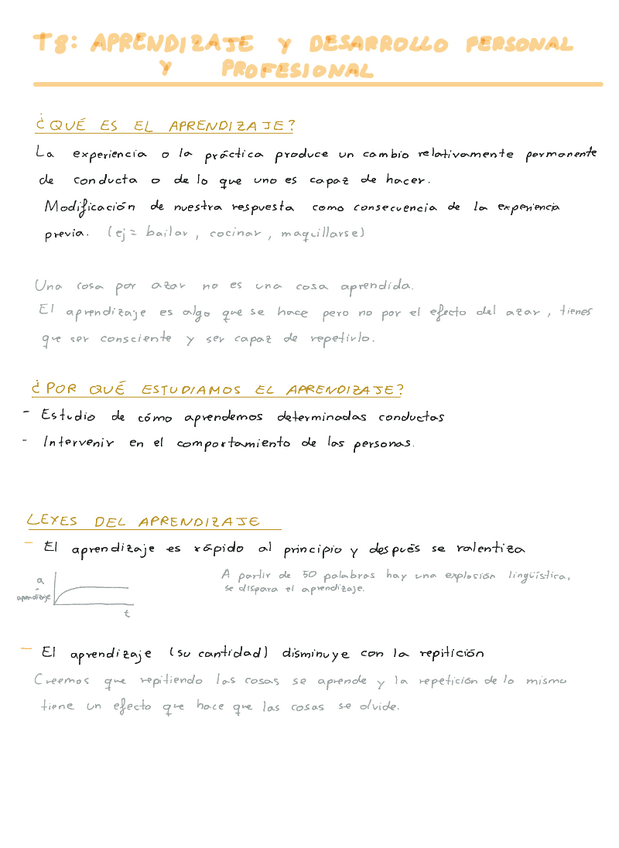 T8: APRENDIZAJE Y DESARROLLO PERSONAL
Y PROFESIONAL
¿QUÉ ES EL APRENDIZAJE?
La experiencia o la práctica produce un cambio relativamente permanente
de conducta o de lo que uno es capaz de hacer.
Modificación de nuestra respuesta como consecuencia de la experiencia
previa. (ej = bailar, cocinar, maquillarse)
Una cosa por azar no es una cosa aprendida.
El aprendizaje es algo que se hace pero no por el efecto del azar, tienes
que ser consciente y ser capaz de repetirlo.
¿POR QUÉ ESTUDIAMOS EL APRENDIZAJE?
- Estudio de cómo aprendemos determinadas conductas
- Intervenir en el comportamiento de las personas.
LEYES DEL APRENDIZAJE
- El aprendizaje es rápido al principio y después se ralentiza
A partir de 50 palabras hay una explosión lingüística,
se dispara el aprendizaje.
a
aprendizaje
t
- El aprendizaje (su cantidad) disminuye con la repitición
Creemos que repitiendo las cosas se aprende y la repetición de lo mismo
tiene un efecto que hace que las cosas se olvide.